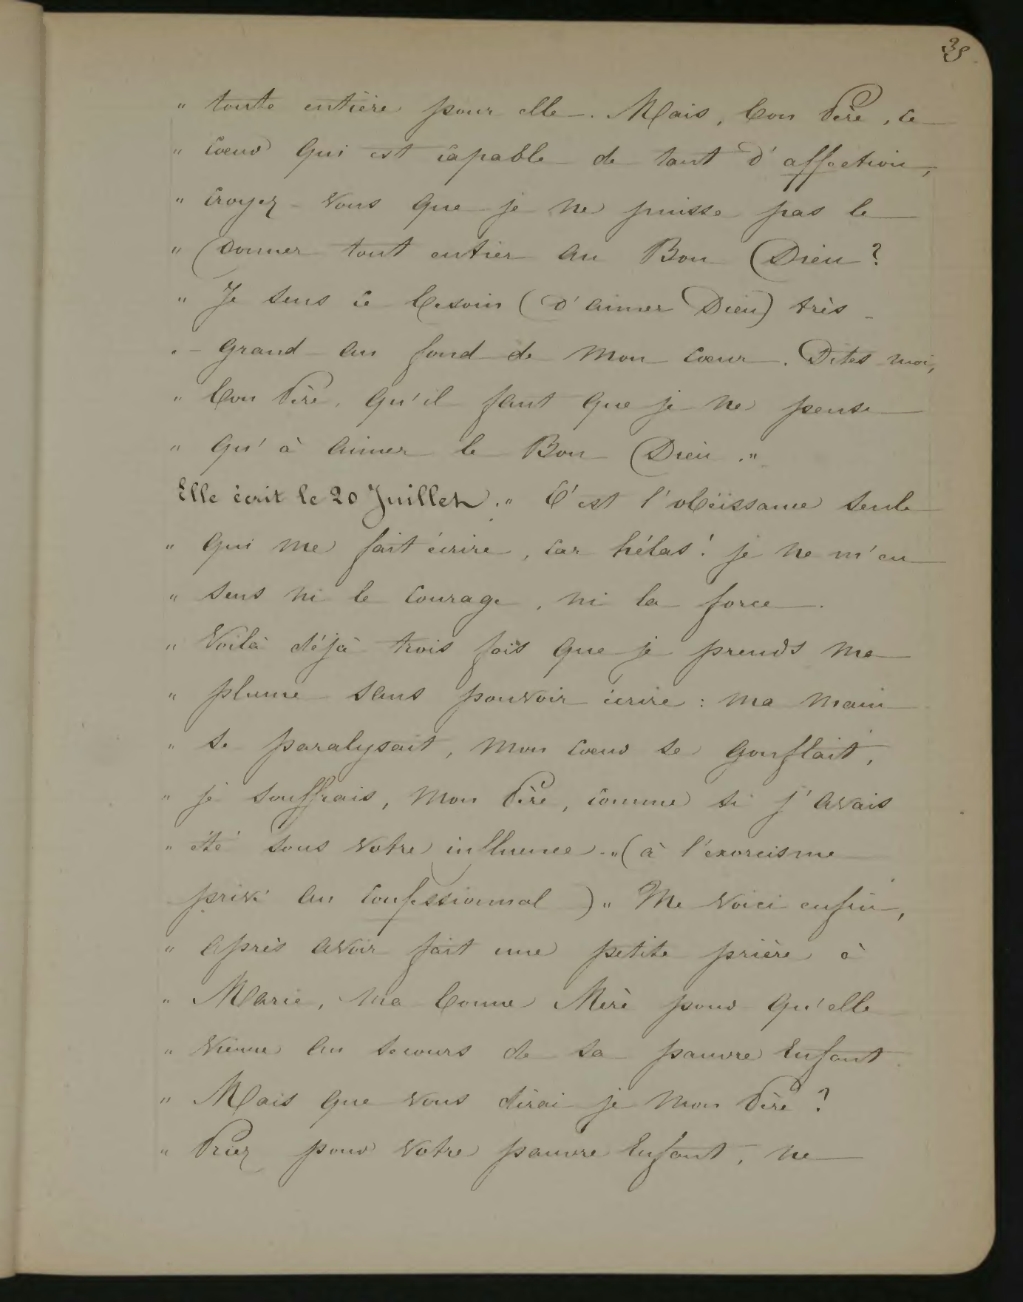 39
" toute entière pour elle. Mais, bon Père, ce
" cœur qui est capable de tant d'affection,
" croyez-vous que je ne puisse pas le
" donner tout entier au Bon Dieu ?
" Je sens ce besoin (d'aimer Dieu) très
" grand au fond de mon cœur. Dites-moi,
" bon Père, qu'il faut que je ne pense
" qu'à aimer le Bon Dieu."
Elle écrit le 20 Juillet. " C'est l'obéissance seule
" qui me fait écrire, car hélas ! je ne m'en
" sens ni le courage, ni la force.
" Voilà déjà trois fois que je prends ma
" plume sans pouvoir écrire : ma main
" se paralysait, mon cœur se gonflait,
" je souffrais, mon Père, comme si j'avais
" été sous votre influence." (à l'exorcisme
privé au confessionnal) " Me voici enfin,
" après avoir fait une petite prière à
" Marie, ma bonne Mère pour qu'elle
" vienne au secours de sa pauvre Enfant.
" Mais que vous dirai-je mon Père ?
" Priez pour votre pauvre Enfant, ne